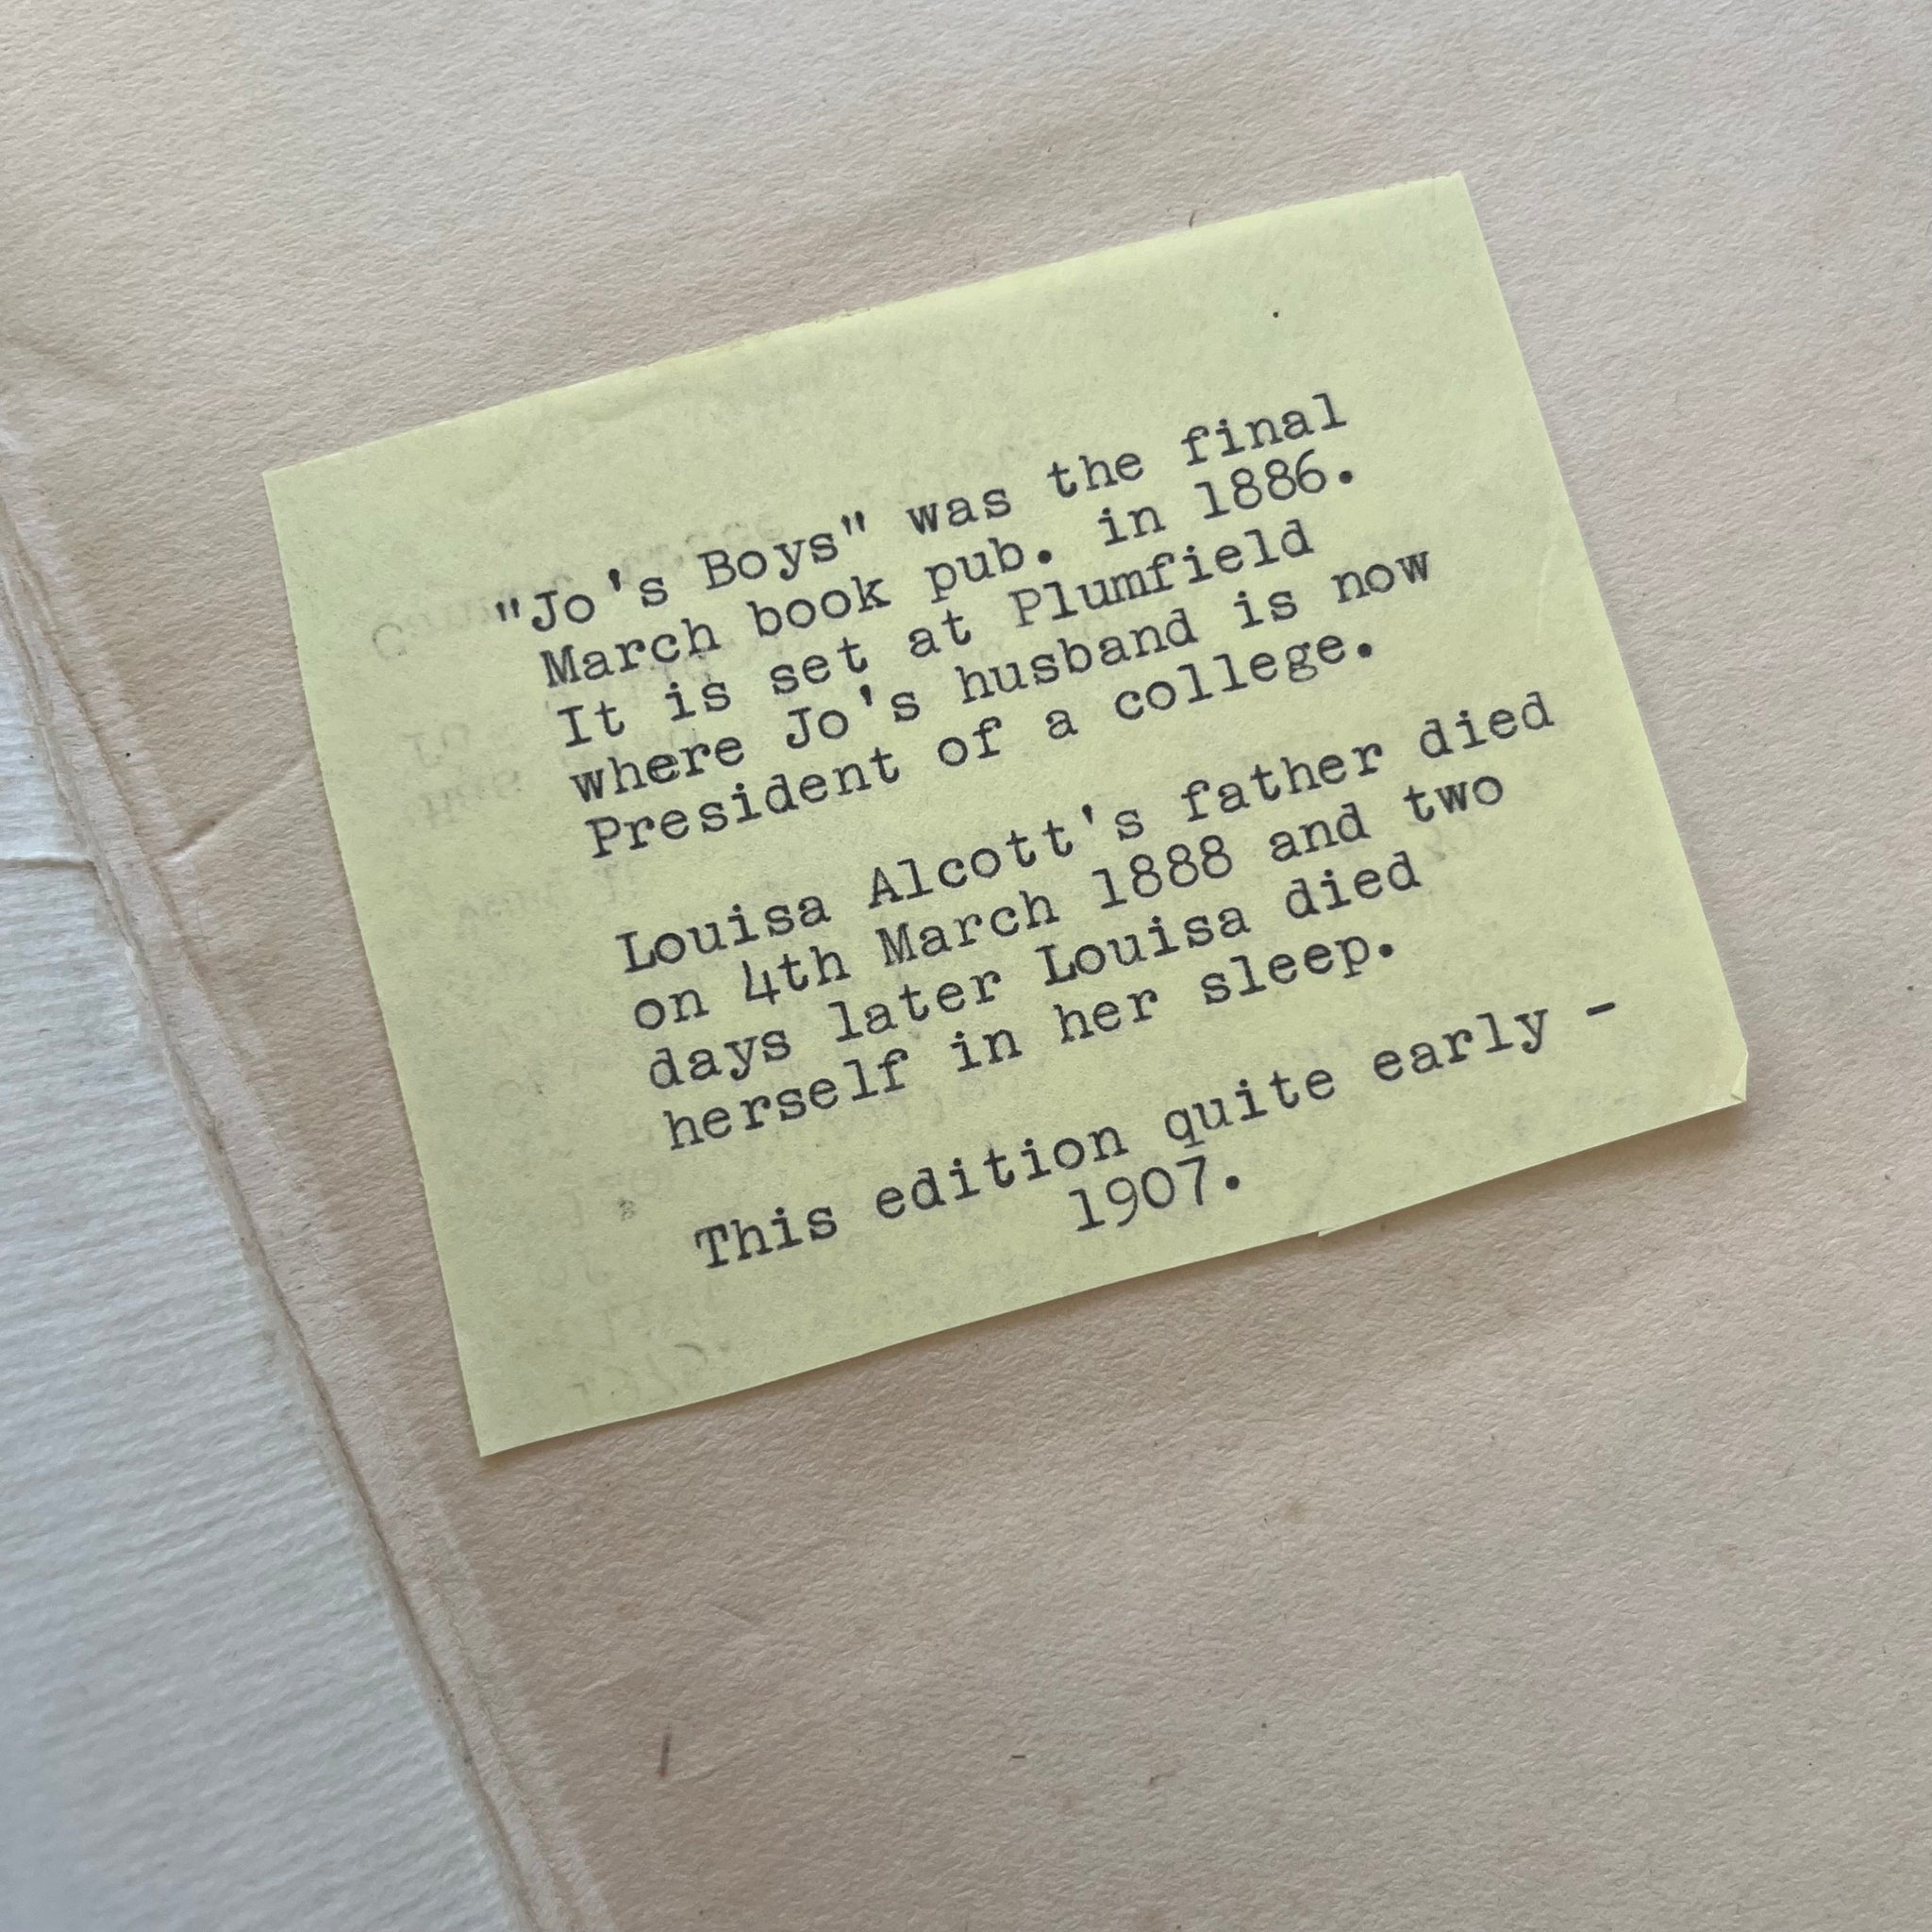 "Jo's Boys" was the final
March book pub. in 1886.
It is set at Plumfield
where Jo's husband is now
President of a college.
Louisa Alcott's father died
on 4th March 1888 and two
days later Louisa died
herself in her sleep.
This edition quite early -
1907.